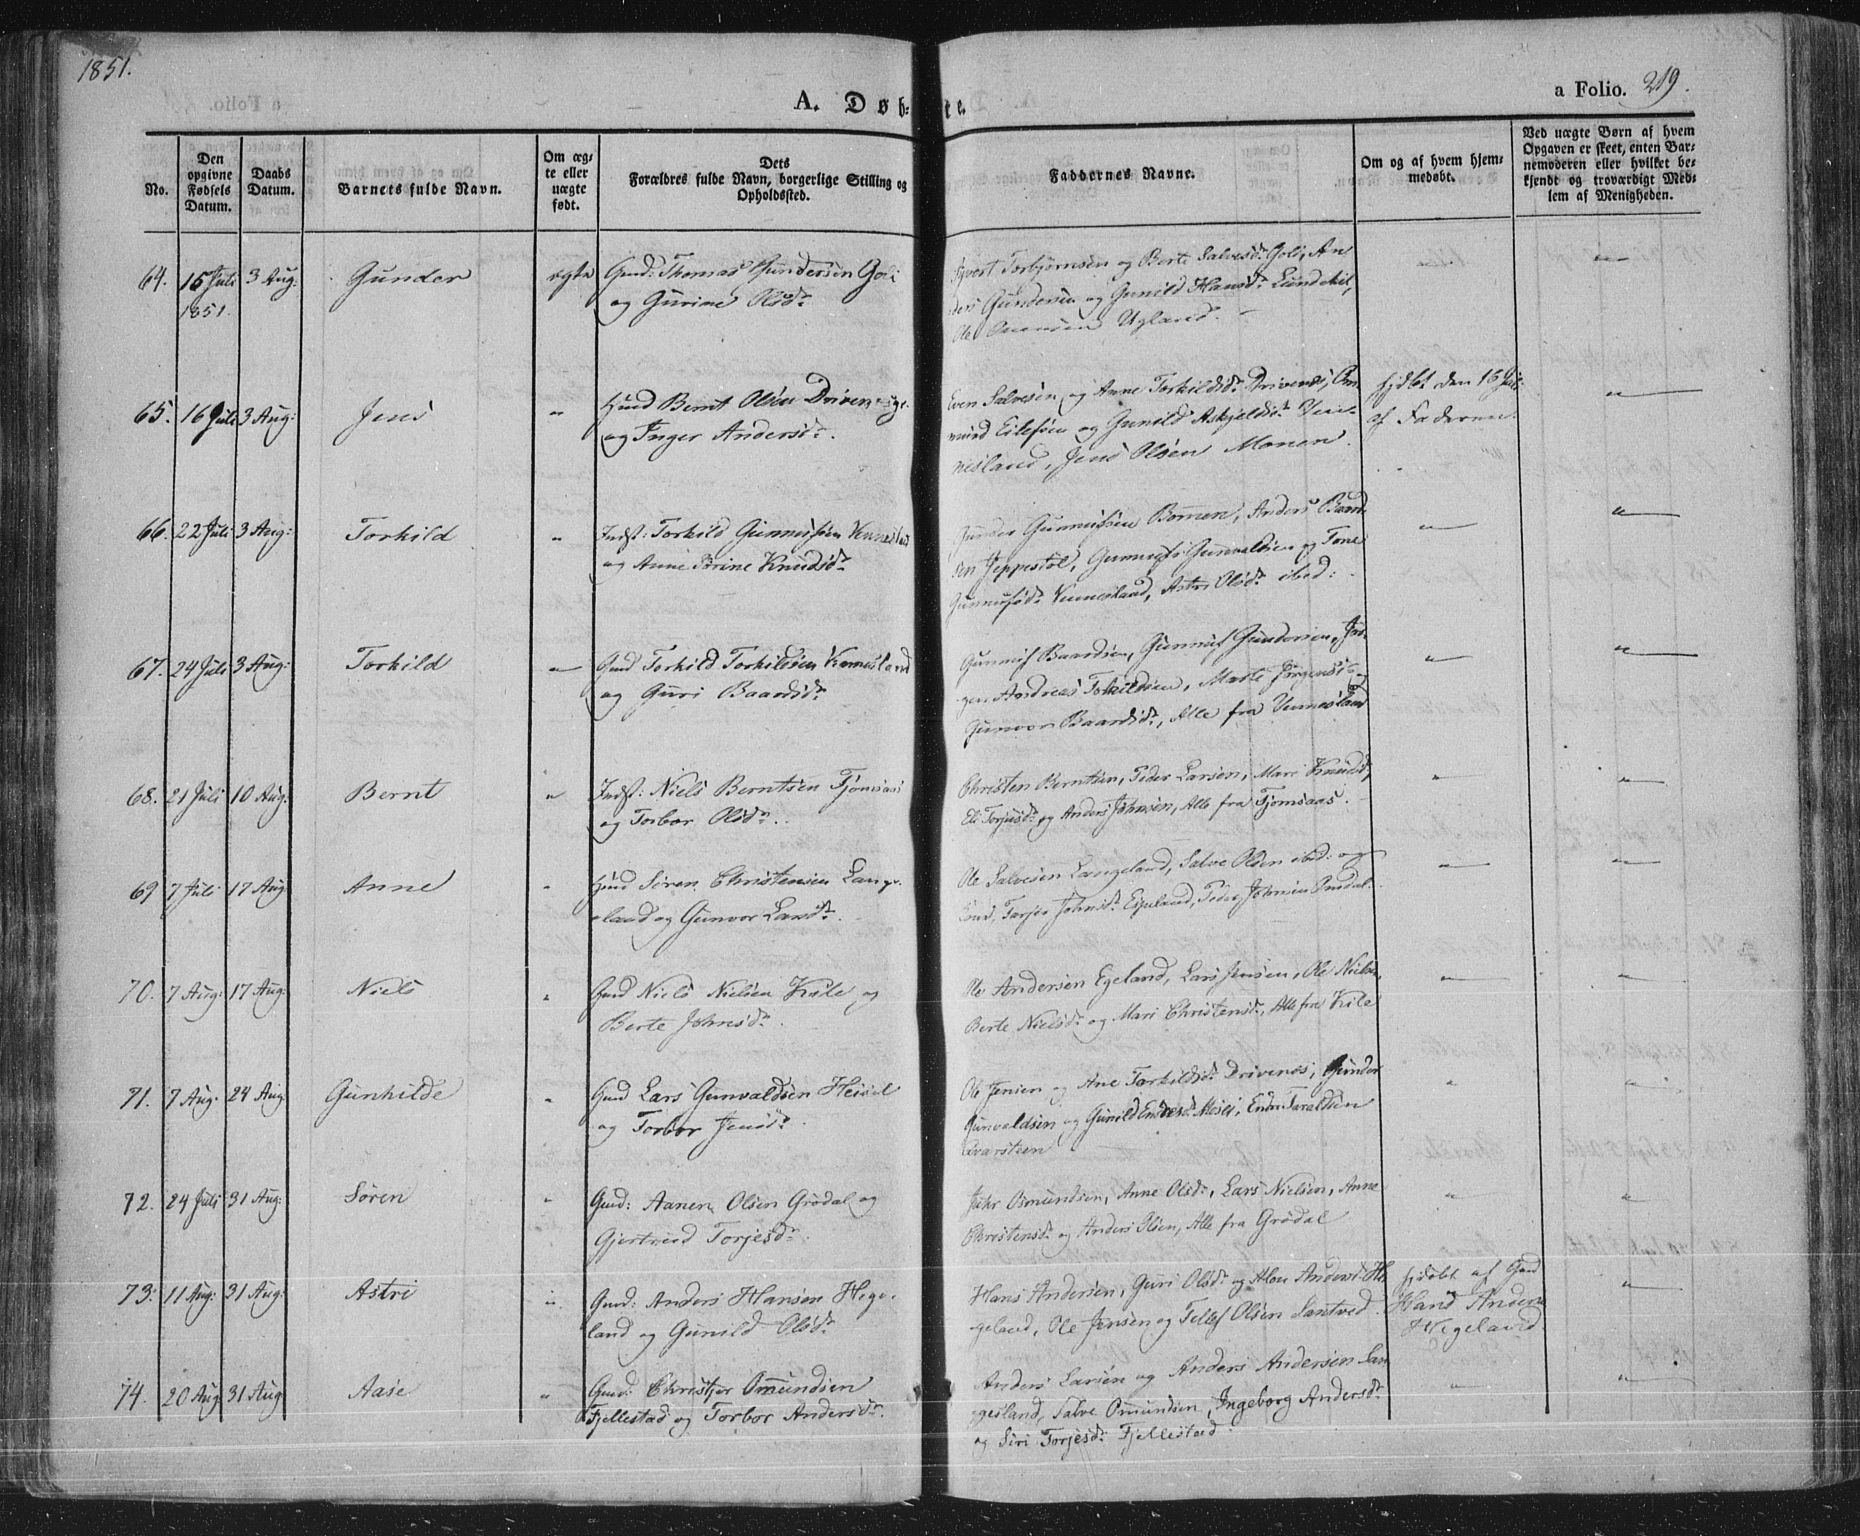 1851.
A. Døb-
te.
a Folio. 219.
No.
Den
opgivne
Fødsels
Datum.
Daabs
Datum.
Barnets fulde Navn.
Om æg-
te eller
uægte
født.
Dets
Forældres fulde Navn, borgerlige Stilling og
Opholdssted.
Faddernes Navne.
Om og af hvem hjem-
medøbt.
Ved uægte Børn af hvem
Opgaven er skeet, enten Bar-
nemoderen eller hvilket be-
kjendt og troværdigt Med-
lem af Menigheden.
64. 15 Juli 3 Aug: Gunder ægte Gmd: Thomas Gundersen Goli
1851. og Gurine Olsdr
Torbjørnsen og Berte Salvesdr Goli, An
ders Gundersen og Gunild Hansdr Lundekil,
Ole Ugland. "
65. 16 Juli 3 Aug: Jens " Gmd Bernt Olsen Drivenes
og Inger Andersdr.
Even Salvesen og Anne Torkildsdr Drivenes, Om
mund Eilefsen og Gunild Askjeldsdr Ven-
nesland, Jens Olsen Monen.
hjdbt den 16 Juli
af Faderen. "
66. 22 Juli 3 Aug: Torkild " Indst: Torkild Gunnufsen Vennesland
og Anne Serine Knudsdr
Gunder Gunnufsen Bomen, Anders Baard
sen Jeppestøl, Gunnuf Gunvaldsen og Tone
Gunnufsdr Vennesland, Astri Olsdr ibid: " "
67. 24 Juli 3 Aug: Torkild " Gmd Torkild Torkildsen Vennesland
og Guri Baardsdr
Gunnuf Baardsen, Gunnuf Gundersen, Jør
gen Andreas Torkildsen, Marte Jørgensd og
Gunvor Baardsdr, Alle fra Vennesland " "
68. 21 Juli 10 Aug: Bernt " Indst: Niels Berntsen Tjomsaas
og Torbor Olsdr.
Christen Berntsen, Peder Larsen, Mari Knudsd,
Eli Torjusdr og Anders Johnsen, Alle fra Tjomsaas. " "
69 7 Juli 17 Aug: Anne " Gmd Søren Christensen Lange-
land og Gunvor Larsdr.
Ole Salvesen Langeland, Salve Olsen ibid: og
Kone, Tarjer Johnsdr Eigeland, Peder Johnsen Omdal. " "
70. 7 Aug: 17 Aug: Niels " Gmd Niels Nielsen Kile og
Berte Johnsdr.
Ole Andersen Egeland, Lars Jensen, Ole Nielsen,
Berte Nielsdr og Mari Christensdr, Alle fra Kile " "
71. 7 Aug: 24 Aug Gunhilde " Gmd Lars Gunvaldsen Heisel
og Torbor Jensdr.
Ole Jensen og Ane Torkildsdr Drivenes, Gunder
Gunvaldsen og Gunild Endresdr Moseid, Endre Taraldsen
Qvarsteen " "
72. 24 Juli 31 Aug: Søren " Gmd: Aanen Olsen Grødal og
Gjertrud Torjesdr.
Jahr Osmundsen, Anne Olsdr, Lars Nielsen, Anne
Christensdr og Anders Olsen, Alle fra Grødal " "
73. 11 Aug: 31 Aug: Astri " Gmd: Anders Hansen Hege-
land og Gunild Olsdr
Hans Andersen, Guri Olsdr og Anders: He
geland, Ole Jensen og Tellef Olsen Santved.
hjdøbt af Gmd
Hans Anders
Hegeland. "
74. 20 Aug 31 Aug Aase " Gmd: Omundsen
Fjellestad og Torbor Andersdr.
Anders Larsen og Anders Andersen Lan
gesland, Salve Omundsen, Ingeborg Andersdr
og Siri Torjesdr Fjellestad. " "